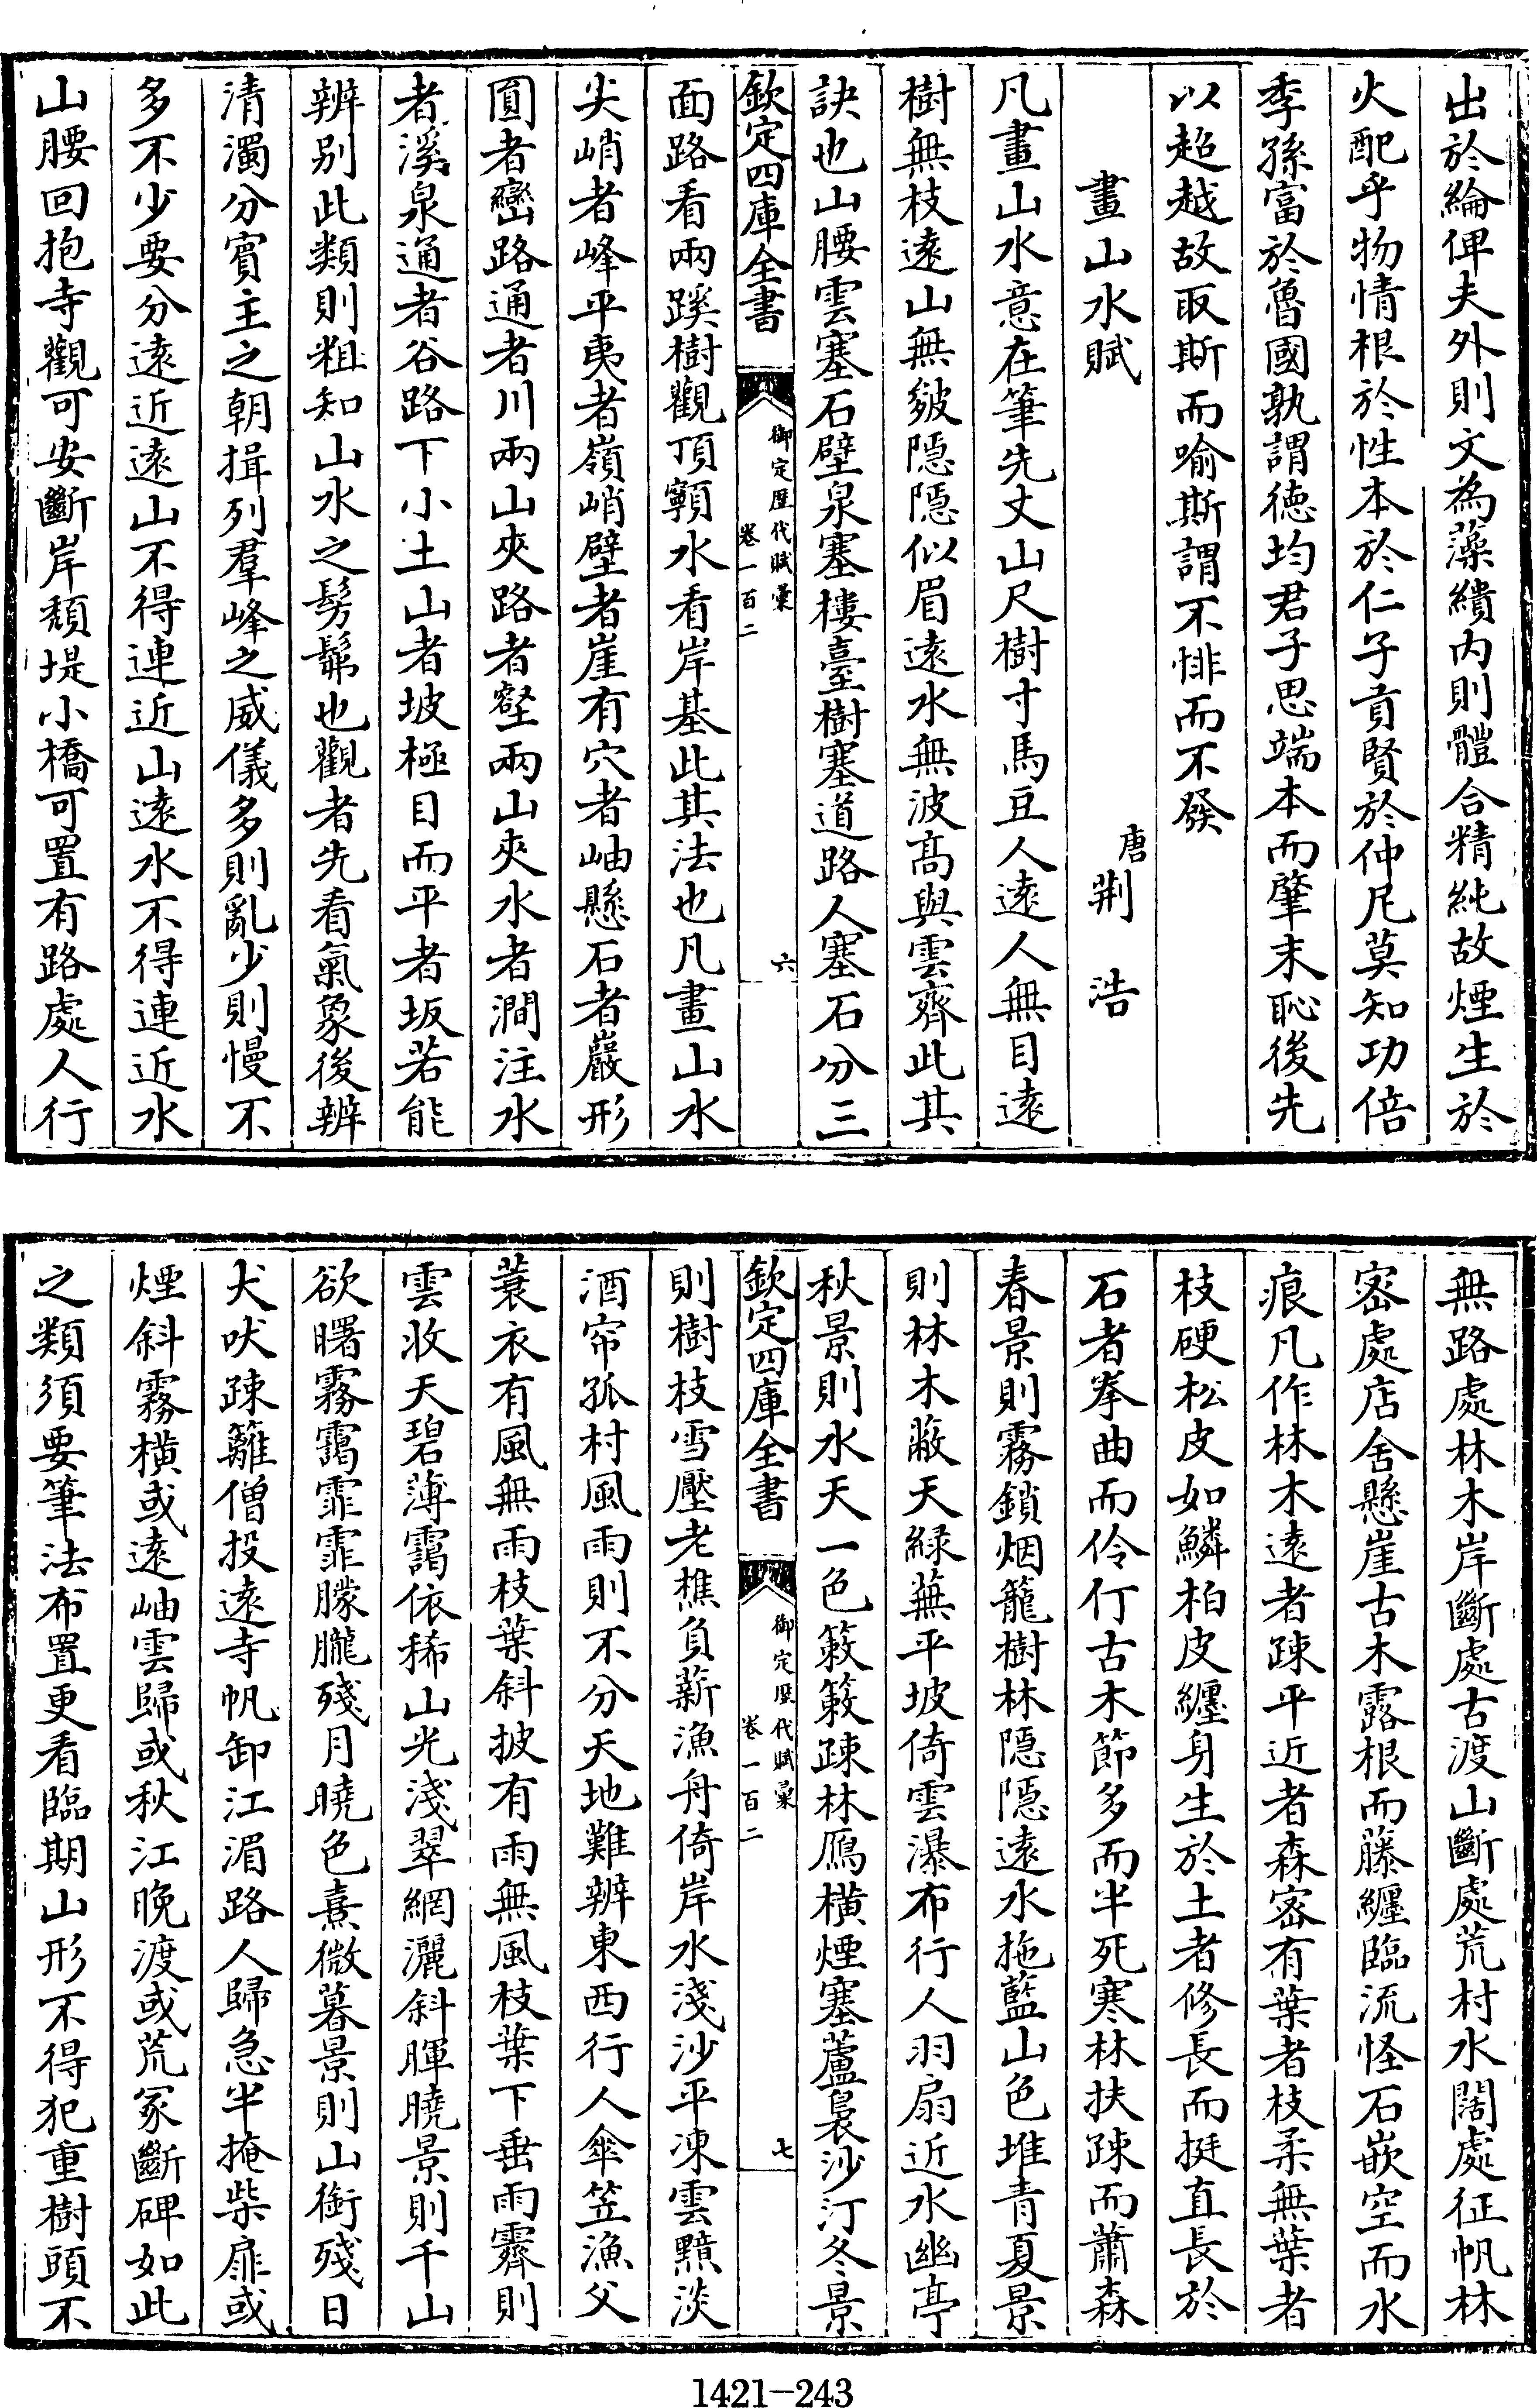 出於綸俾夫外則文為藻繢内則體合精純故煙生於
火配乎物情根於性本於仁子貢賢於仲尼莫知功倍
季孫富於魯國孰謂德均君子思端本而肇末恥後先
以超越故取斯而喻斯謂不悱而不發
畫山水賦
唐荆浩
凡畫山水意在筆先丈山尺樹寸馬豆人遠人無目遠
樹無枝遠山無皴隠隠似眉遠水無波髙與雲齊此其
訣也山腰雲塞石壁泉塞樓臺樹塞道路人塞石分三
欽定四庫全書
御定歴代賦彚
卷一百二
六
面路看兩蹊樹觀頂顊水看岸基此其法也凡畫山水
尖峭者峰平夷者嶺峭壁者崖有穴者岫懸石者巖形
圓者巒路通者川兩山夾路者壑兩山夾水者澗注水
者溪泉通者谷路下小土山者坡極目而平者坂若能
辨别此類則粗知山水之髣髴也觀者先看氣象後辨
清濁分賓主之朝揖列羣峰之威儀多則亂少則慢不
多不少要分遠近遠山不得連近山遠水不得連近水
山腰回抱寺觀可安斷岸頹堤小橋可置有路處人行
無路處林木岸斷處古渡山斷處荒村水闊處征帆林
密處店舍懸崖古木露根而藤纏臨流怪石嵌空而水
痕凡作林木遠者疎平近者森密有葉者枝柔無葉者
枝硬松皮如鱗柏皮纏身生於土者修長而挺直長於
石者拳曲而伶仃古木節多而半死寒林扶疎而蕭森
春景則霧鎖烟籠樹林隠隠遠水拖藍山色堆青夏景
則林木蔽天緑蕪平坡倚雲瀑布行人羽扇近水幽亭
秋景則水天一色簌簌疎林鴈横煙塞蘆裊沙汀冬景
欽定四庫全書
御定歴代賦彚
卷一百二
七
則樹枝雪壓老樵負薪漁舟倚岸水淺沙平凍雲黯淡
酒帘孤村風雨則不分天地難辨東西行人傘笠漁父
蓑衣有風無雨枝葉斜披有雨無風枝葉下垂雨霽則
雲收天碧薄靄依稀山光淺翠網灑斜暉曉景則千山
欲曙霧靄霏霏朦朧殘月曉色熹微暮景則山銜殘日
犬吠疎籬僧投遠寺帆卸江湄路人歸急半掩柴扉或
煙斜霧横或遠岫雲歸或秋江晚渡或荒冢斷碑如此
之類須要筆法布置更看臨期山形不得犯重樹頭不
1421-243